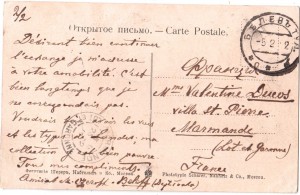 2/2
Открытое письмо. — Carte Postale.
БѢЛЕВЪ
Désirant bien continuer
l'échange je m'adresse
à votre amabilité. C'est
bien longtemps que je
ne correspondais pas.
Voudrais
et les types
collection est bien pauvre
Tous mes compliments.
Франція
Mme Valentine Ducos
villa St. Pierre
Marmande
(Lot et Garonne)
France
Фототипія Шереръ, Набгольцъ и Ко., Москва.
Phototypie Scherer, Nabholz & Co., Moscou.